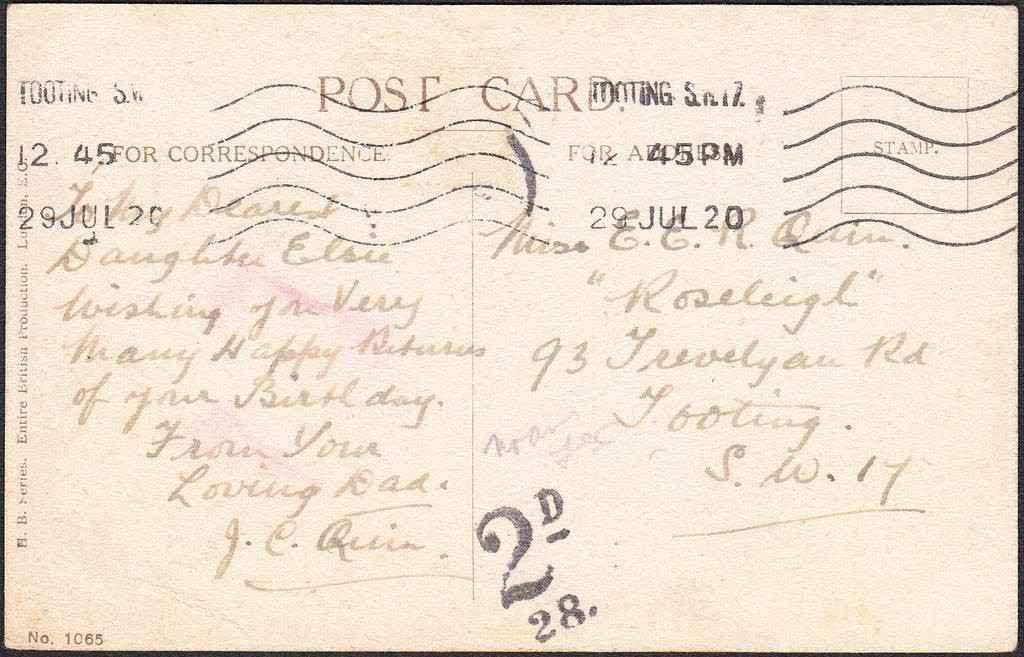 POST CARD.
TOOTING S.W
12. 45
29 JUL 20
TOOTING S.W.17.
12 45 PM
29 JUL 20
FOR CORRESPONDENCE.
FOR ADDRESS
STAMP.
To My Dearest
Daughter Elsie
Wishing you Very
Many Happy Returns
of your Birthday.
From Your
Loving Dad.
J. C. Quin.
Miss E. E. R. Quin.
"Roseleigh"
93 Trevelyan Rd
Tooting.
S. W. 17
2D
28.
H. B. Series. Entire British Production. London, E.C.
No. 1065